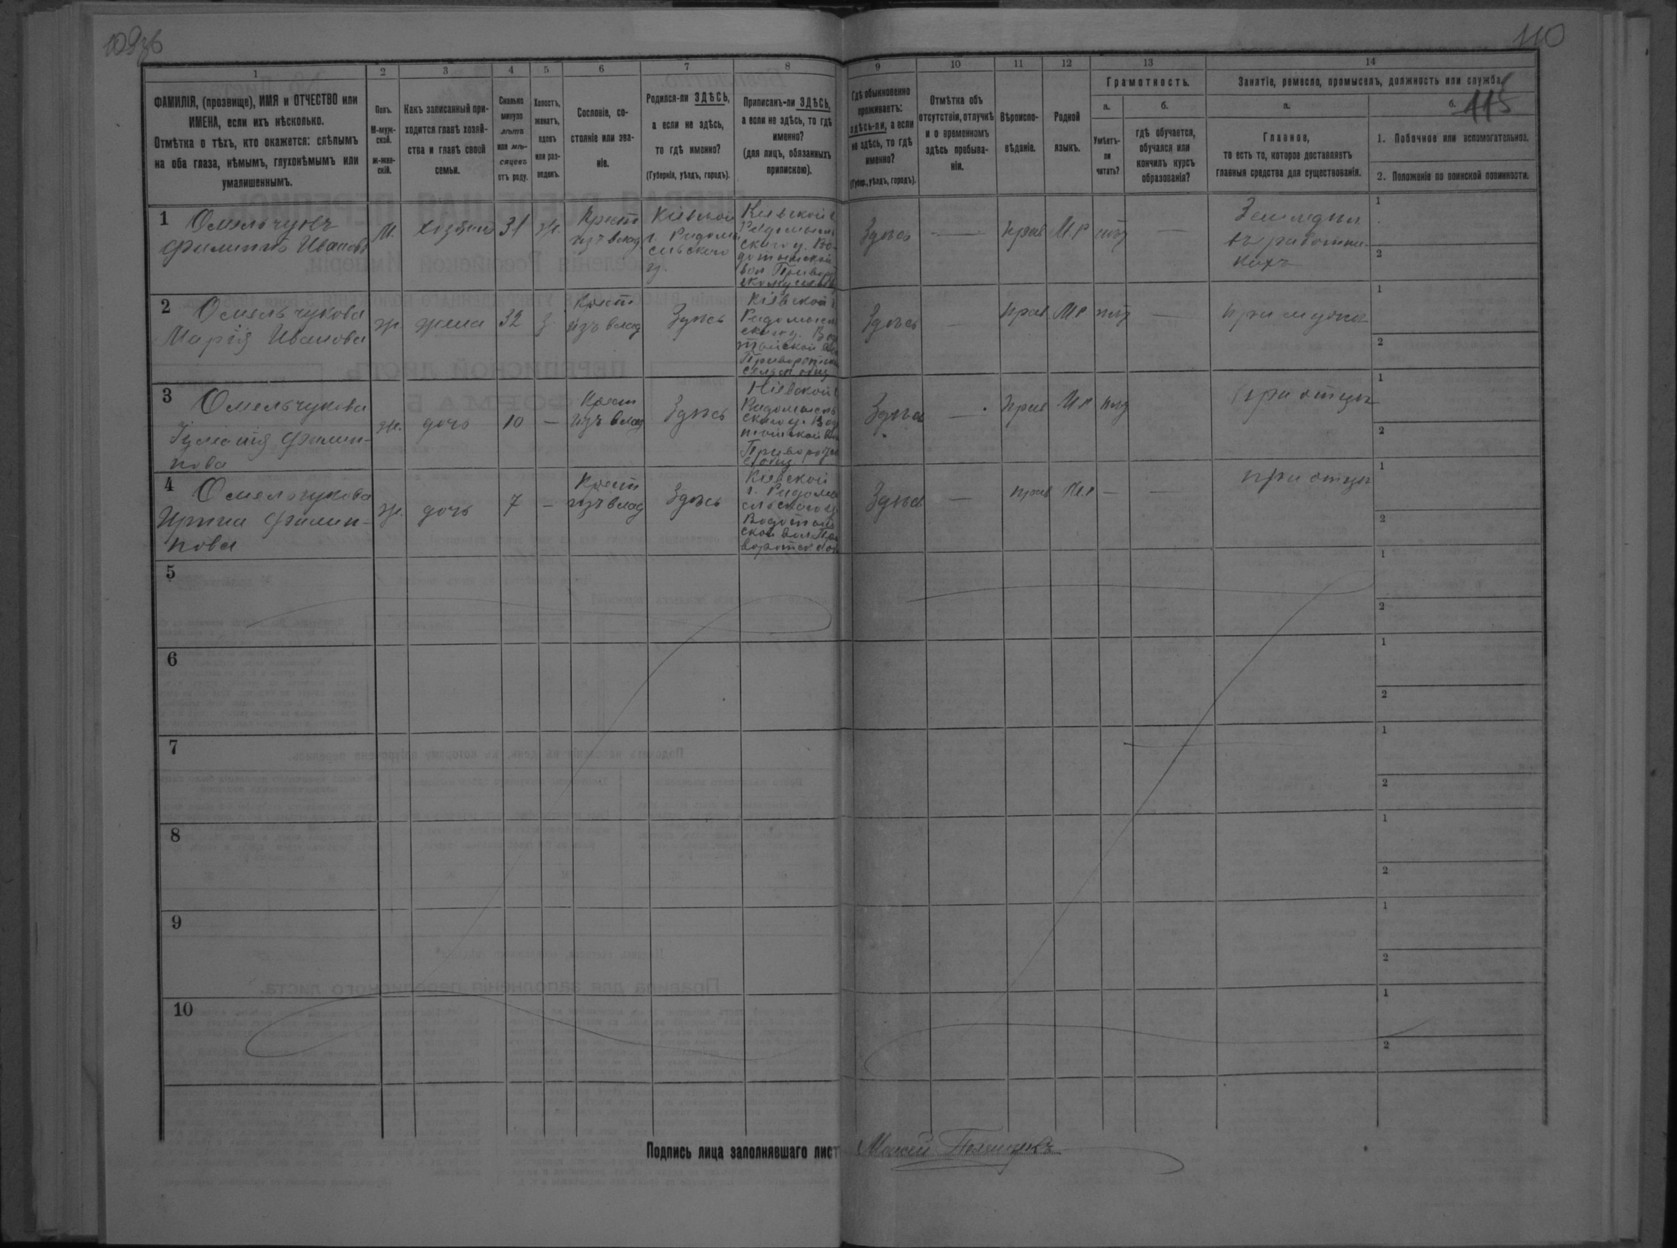 109об
110
115
1 2 3 4 5 6 7 8 9 10 11 12 13 14
ФАМИЛІЯ, (прозвище), ИМЯ и ОТЧЕСТВО или
ИМЕНА, если ихъ нѣсколько.
Отмѣтка о тѣхъ, кто окажется: слѣпымъ
на оба глаза, нѣмымъ, глухонѣмымъ или
умалишеннымъ.
Полъ.
М-муж-
ской.
ж-жен-
скій.
Какъ записанный при-
ходится главѣ хозяй-
ства и главѣ своей
семьи.
Сколько
минуло
лѣтъ
или мѣ-
сяцевъ
отъ роду.
Холостъ,
женатъ,
вдовъ
или раз-
веденъ.
Сословіе, со-
стояніе или зва-
ніе.
Родился-ли ЗДѢСЬ,
а если не здѣсь,
то гдѣ именно?
(Губернія, уѣздъ, городъ).
Приписанъ-ли ЗДѢСЬ,
а если не здѣсь, то гдѣ
именно?
(для лицъ, обязанныхъ
припискою).
Гдѣ обыкновенно
проживаетъ:
здѣсь-ли, а если
не здѣсь, то гдѣ
именно?
(Губер., уѣздъ, городъ).
Отмѣтка объ
отсутствіи, отлучкѣ
и о временномъ
здѣсь пребыва-
ніи.
Вѣроиспо-
вѣданіе.
Родной
языкъ.
Грамотность.
а.
Умѣетъ-
ли
читать?
б.
гдѣ обучается,
обучался или
кончилъ курсъ
образованія?
Занятіе, ремесло, промыселъ, должность или служба.
а.
Главное,
то есть то, которое доставляетъ
главныя средства для существованія.
б.
1. Побочное или вспомогательное.
2. Положеніе по воинской повинности.
1
Омельчукъ
Филиппъ Ивановъ
м.
хозяин
31
ж.
Крест
изъ влад
Кіевской
г. Радомы
сльского
у.
Кіевской г
Радомысль
ского у.
Здѣсь
—
прав
МР
нѣт
—
Земледѣл
въ работни
кахъ
1
2
2
Омельчукова
Марія Иванова
ж
жена
32
з
Крест
изъ влад
Здѣсь
Кіевской г
Радомысль
ского у.
Здѣсь
—
прав
МР
нѣт
—
при мужѣ
1
2
3
Омельчукова
Филип-
пова
ж.
дочь
10
—
Крест
изъ влад
Здѣсь
Кіевской г
Радомысль
ского у.
Здѣсь
—
прав
МР
нѣт
—
при отцѣ
1
2
4
Омельчукова
Ирина Филип-
пова
ж.
дочь
7
—
Крест
изъ влад
Здѣсь
Кіевской
г. Радомы
сльского у
Здѣсь
—
прав
МР
—
—
при отцѣ
1
2
5
1
2
6
1
2
7
1
2
8
1
2
9
1
2
10
1
2
Подпись лица заполнявшаго лист